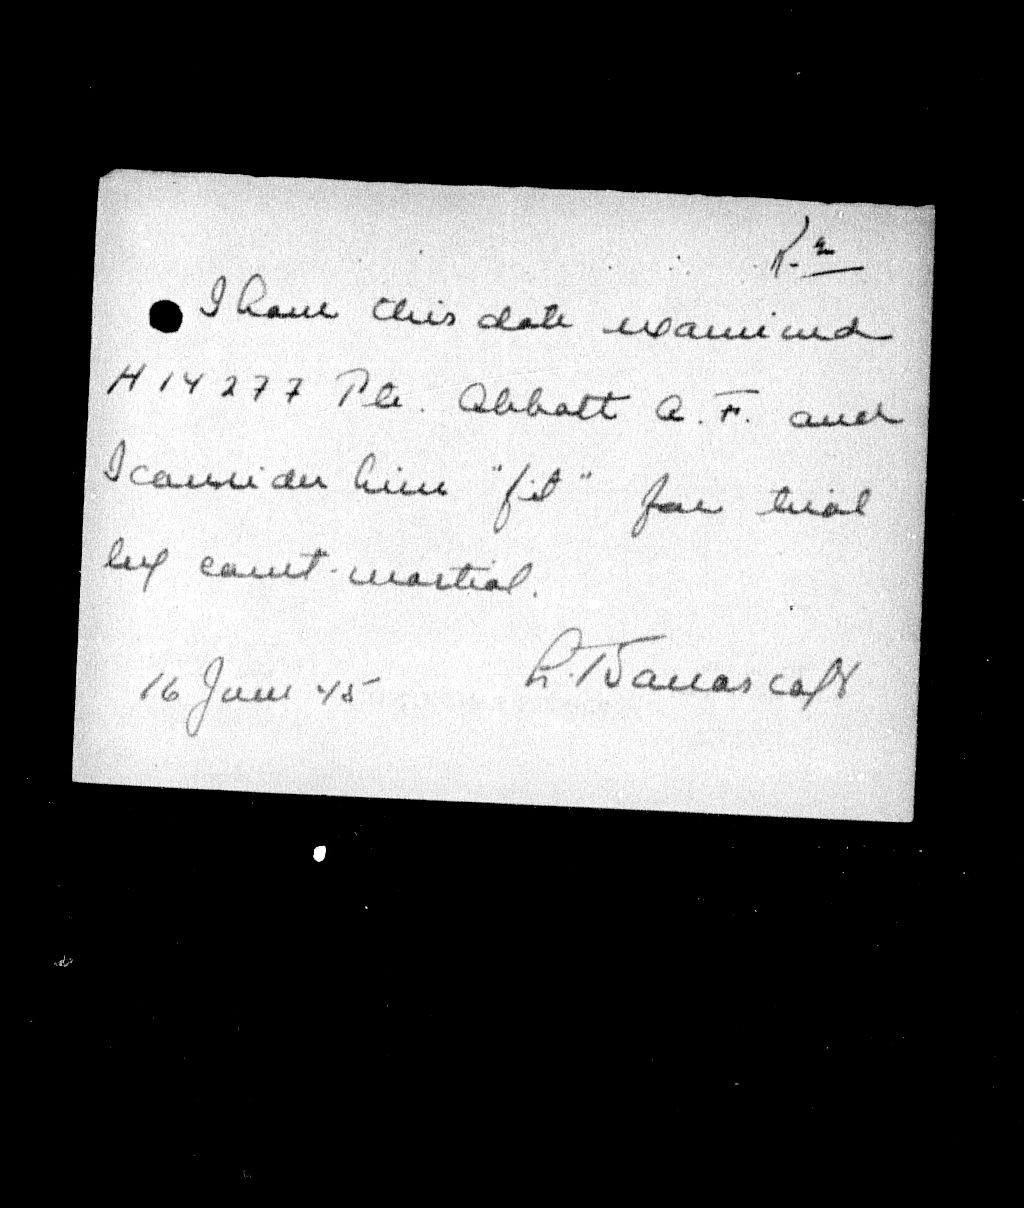 I have this date examined
H 14277 Pte. Abbott A. F. and
I consider him "fit" for trial
by court-martial.
16 June 45